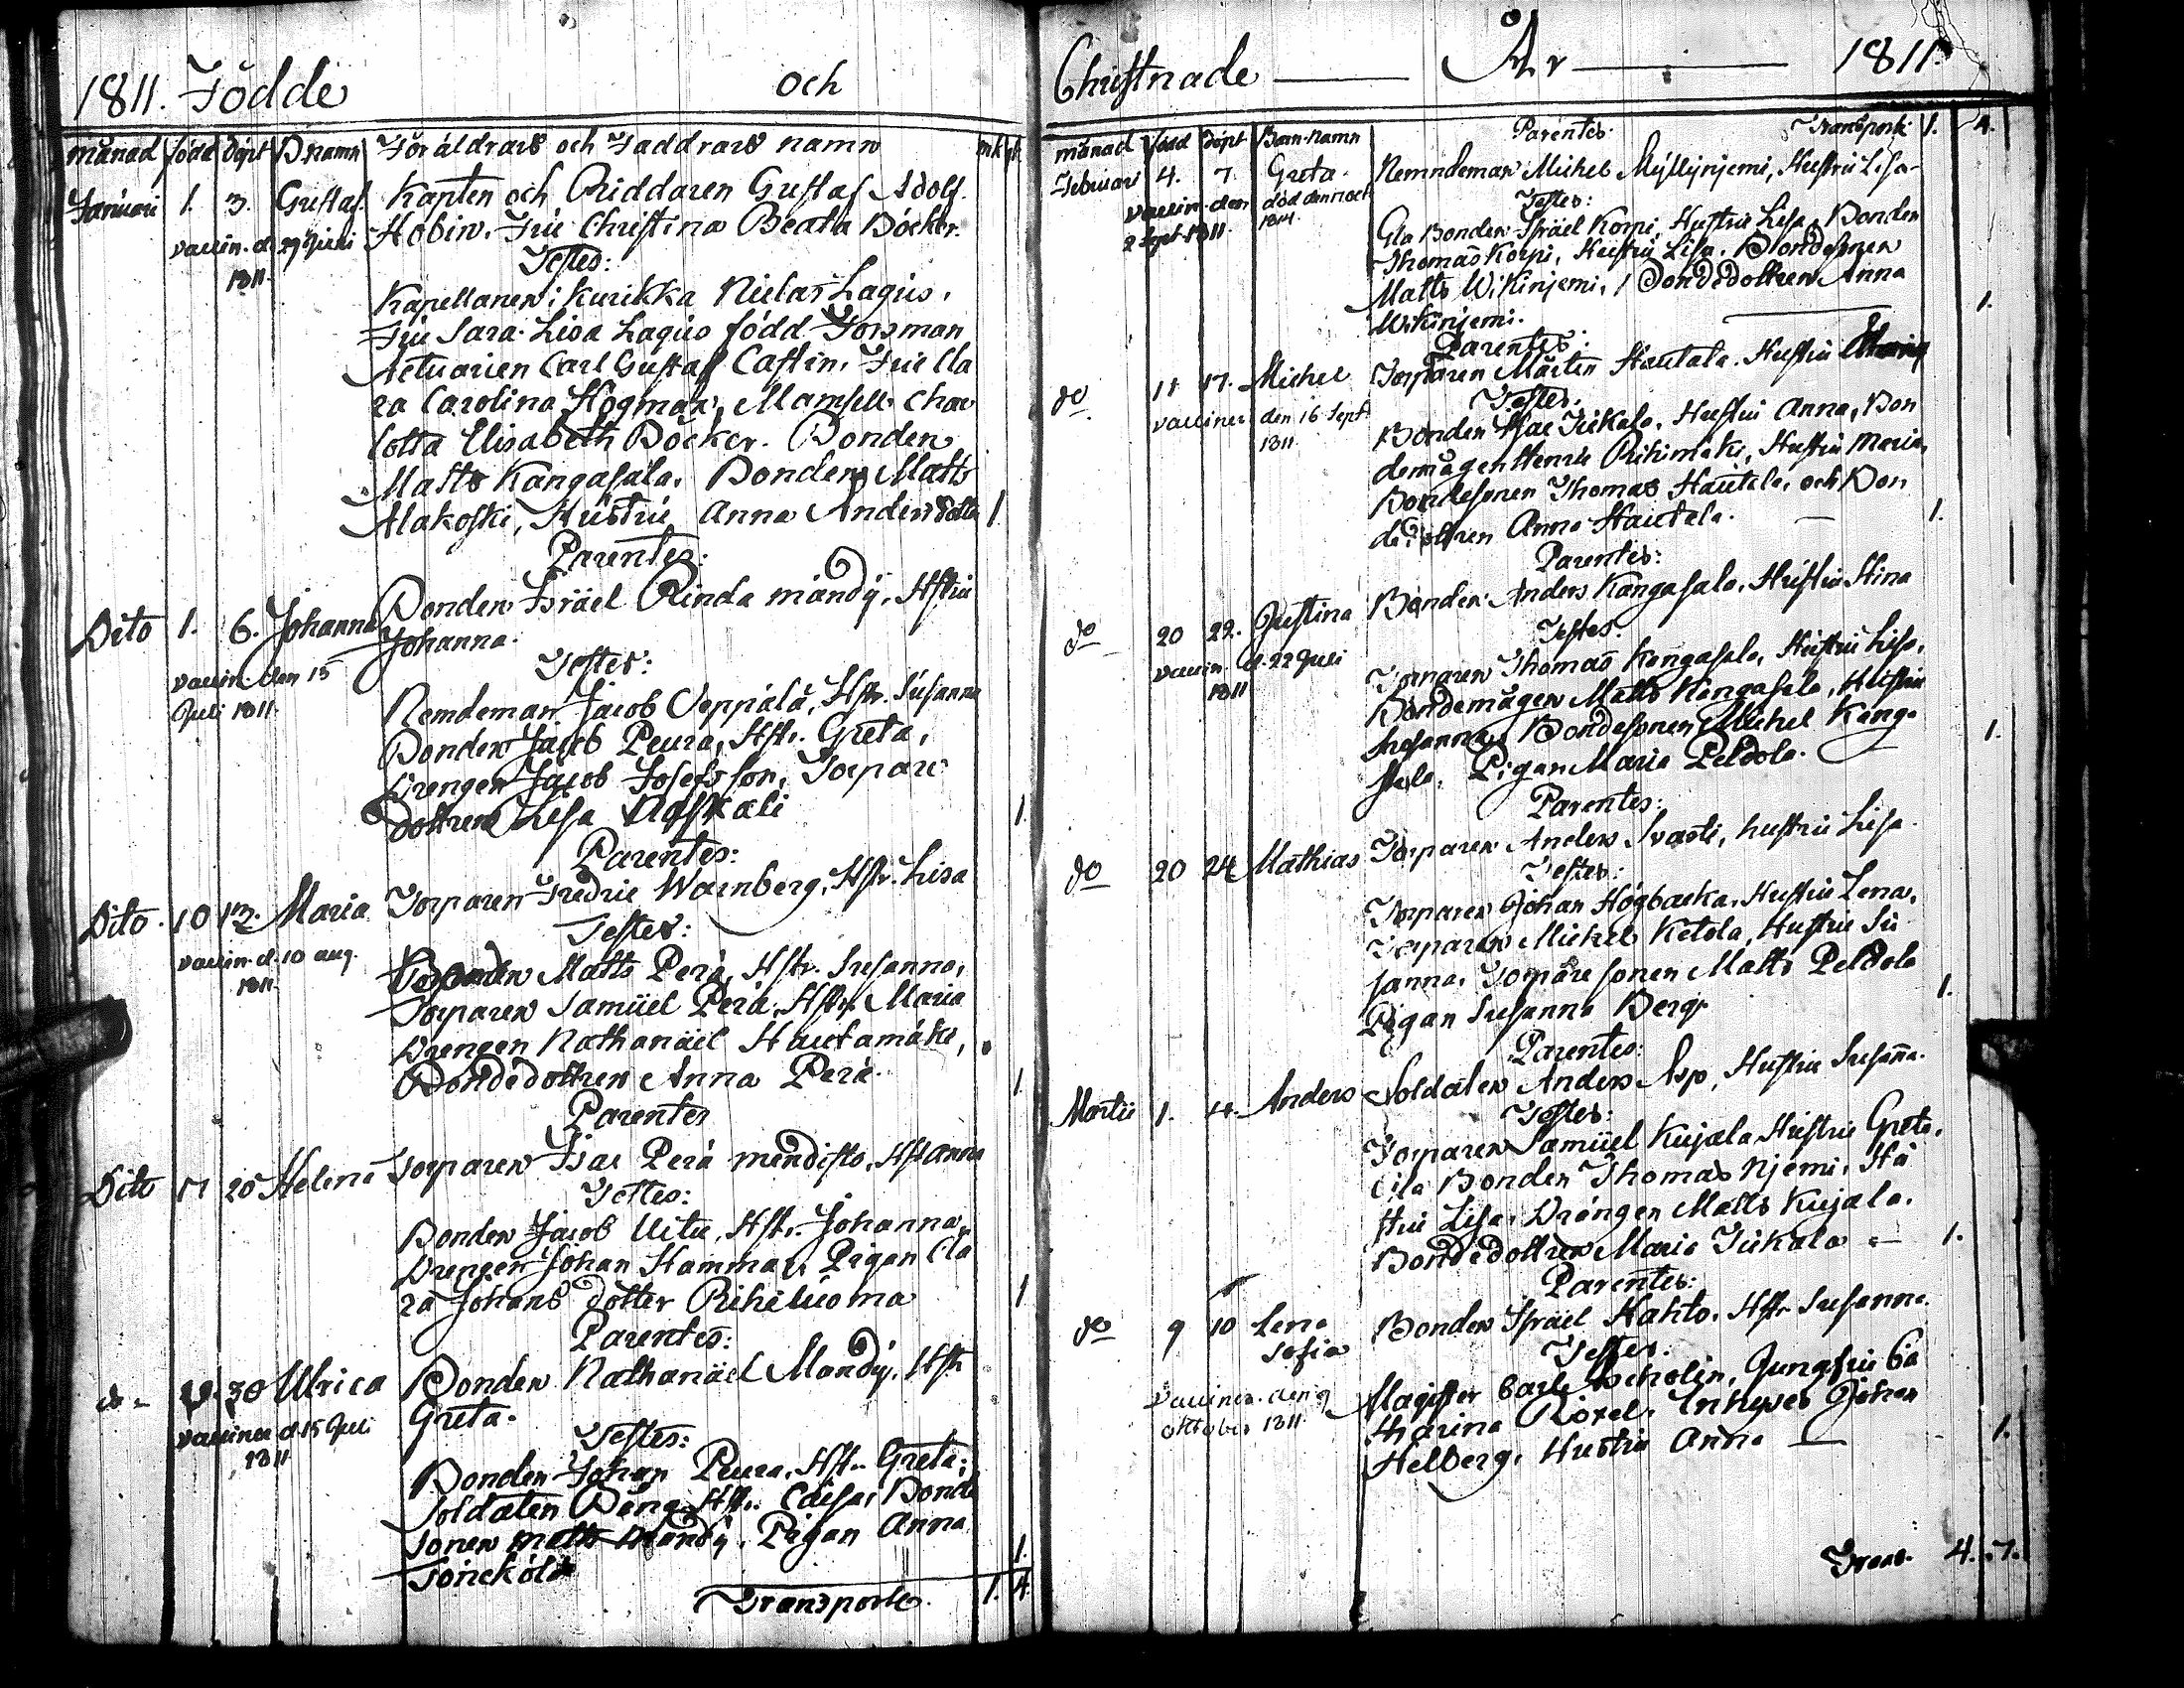 1811. Födde och
månad född döpt B.namn Föräldrars och Faddrars namn mk qk
Januari 1. 3. Gustaf Kapten och Riddaren Gustaf Adolf
vaccin. d. 29 Junii Hobin. Fru Christina Beata Böcker.
1811. Testes:
Kapellanen i Kurikka Niclas Lagus,
Fru Sara Lisa Lagus född Forsman
Actuarien Carl Gustaf Castrin, Fru Cla
ra Carolina Högman, Mamsell Char
lotta Elisabeth Böcker. Bonden
Matts Kangasala. Bonden Matts
Alakoski, Hustru Anna Andersdotter 1
Parentes:
Dito 1. 6. Johanna Bonden Israel Rinda mändÿ, Hstru
Johanna.
vaccin. den 15 Testes:
Juli 1811. Nemdeman Jacob Seppälä, Hstr. Susanna
Bonden Jacob Peura, Hstr. Greta,
Drengen Jacob Josefsson, Torpare
dottren Lisa Naskali 1.
Parentes:
Dito. 10 13. Maria Torparen Fredric Warnberg, Hstr. Lisa
vaccin. d. 10 aug. Testes:
1811. Matts Perä, Hstr. Susanna,
Torparen Samuel Perä, Hstr. Maria
Drengen Nathanäel Hautamäki,
Bondedottren Anna Perä. 1.
Parentes
Dito 17 20 Helena Torparen Isac Perä mendisto, Hst anna
Testes:
Bonden Jacob Uitu, Hstr. Johanna,
Drengen Johan Hammar, Pigan Cla
ra Johans dotter Rihiluoma 1
Parentes:
do 29. 30 Ulrica Bonden Nathanäel Mandÿ, Hstr
Greta.
vaccinee d. 15 Juli Testes:
1811 Bonden Johan Peura, Hstr. Greta,
Soldaten Bång, Hstr. Caisa, Bonde
sonen Matts Mändÿ, Pigan Anna
1.
Transporte. 1. 4
Christnade År 1811.
månad född döpt Barn-namn Parentes: Transport: 1. 4.
Februari 4. 7. Greta. Nemndeman Michel Myllynjemi, Hustru Lisa
vaccin. den död den
2 Sept. 1811. 1814. Testes:
Gla Bonden Israel Korpi, Hustru Lisa, Bonden
Thomas Korpi, Hustru Lisa, Bondesonen
Matts Wikinjemi, Bondedottren Anna
Wikinjemi. 1.
Parentes:
do 11 17. Michel Torparen Mårten Hautala. Hustru
vaccinee den 16 Sept Testes.
1811. Bonden Isac Tukala, Hustru Anna, Bon
demågen Henric Rihimäki, Hustru Maria,
Bondesonen Thomas Hautala, och Bon
de dottren Anna Hautala. 1.
Parentes:
do 20 22. Justina Bonden Anders Kangasala, Hustru Stina
vaccin. d. 22 Juli Testes.
1811 Torparen Thomas Kangasala, Hustru Lisa,
Bondemågen Matts Kangasala, Hustru
Susanna, Bondesonen Michel Kanga
sala, Pigan Maria Peldola. 1.
Parentes:
do 20 24 Mathias Torparen Anders Svasti, hustru Lisa.
Testes:
Torparen Johan Högbacka, Hustru Lena,
Torparen Michel Ketola, Hustru Su
sanna, Torpare sonen Matts Peldola
Pigan Susanna Berg. 1.
Parentes:
Martii 1. 4. Anders Soldaten Anders Asp, Hustru Susanna.
Testes:
Torparen Samuel Kujala Hustru Greta,
Bonden Thomas Njemi, Hu
stru Lisa, Drängen Matts Kujala.
Bondedottren Maria Tukala 1.
Parentes:
do 9 10 Lena Bonden Israel Kahto, Hstr Susanna.
Sofia Testes.
Vaccinee. den 9 Magister Carl Ascholin, Jungfru Ca
oktober 1811. tharina Roxel. Inhyses Johan
Helberg, Hustru Anna 1.
Trans. 4. 7.